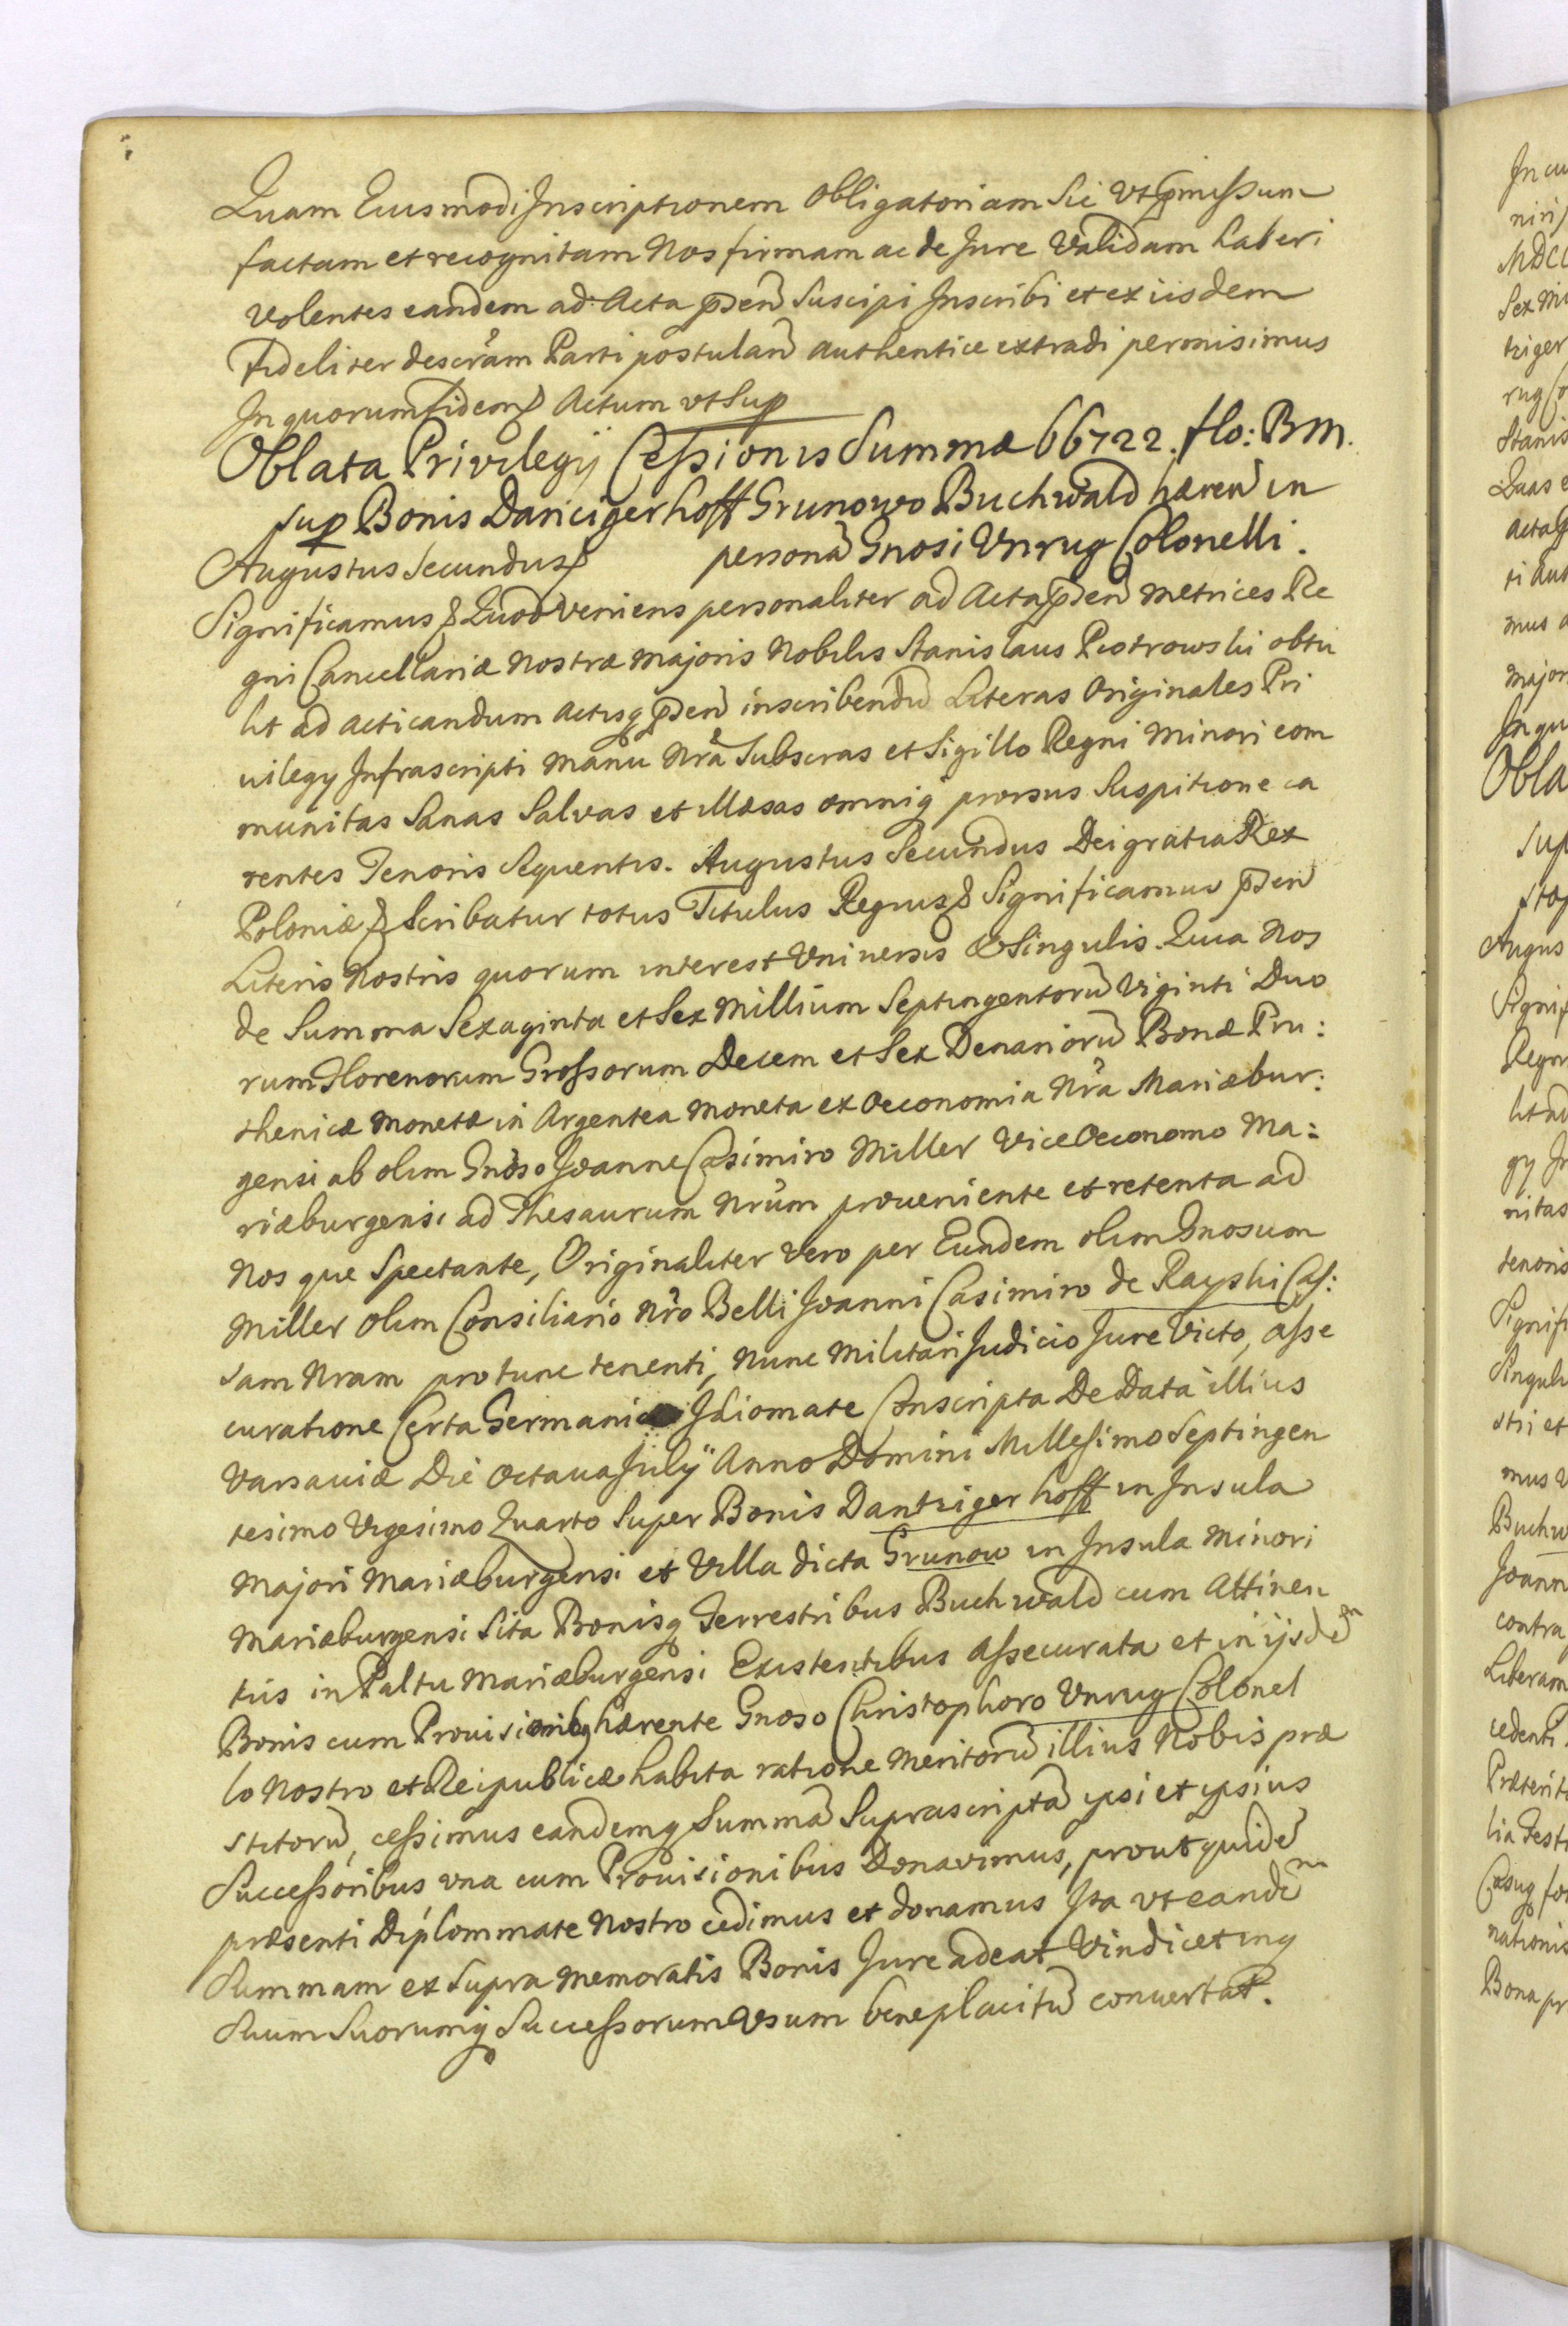 Quam Eiusmodi Inscriptionem Obligatoriam Sic Vt p̱missum
factam et recognitam Nos firmam ac de Jure Validam haberi
Volentes eandem ad Acta p̱sen̄ Suscipi Inscribi et ex iisdem
fideliter descr̃am Parti postulan̄ authentice extradi permisimus
In quorum fidem &c Actum vt Sup
Oblata Privilegij Cessionis Summæ 66722. flo: Bm.
sup Bonis Dancigerhoff Grunowo Buchwald hæren̄ in
Augustus Secundus &c personā Gnosi Vnrug Colonelli.
Significamus &c Quod Veniens personaliter ad Acta p̱sen̄ Metrices Re
gni Cancellariæ Nostræ Majoris Nobilis Stanislaus Piotrowski obtu
lit ad acticandum actisq p̱sen̄ inscribendū Literas Originales Pri
uilegy Infrascripti Manu Nr̃a Subscras et Sigillo Regni Minori com
munitas Sanas Salvas et illæsas omniq prorsus Suspitione ca
rentes Tenoris Sequentis. Augustus Secundus Dei gratia Rex
Poloniæ &c Scribatur totus Titulus Regius &c Significamus p̱sen̄
Literis Nostris quorum interest Vniuersis & Singulis. Quia Nos
de Summa Sexaginta et Sex Millium Septingentorū Viginti Duo
rum Florenorum Grossorum Decem et Sex Denariorū Bonæ Pru:
thenicæ Monetæ in Argentea Moneta ex Oeconomia Nr̃a Mariæbur:
gensi ab olim Gnōso Joanne Casimiro Miller Vice Oeconomo Ma:
riæburgensi ad Thesaurum Nr̃um proueniente et retenta ad
Nos que Spectante, Originaliter Vero per Eundem olim Gnosum
Miller Olim Consiliario Nr̃o Belli Joanni Casimiro de Rayski Cas:
sam Nram pro tunc tenenti, Nunc Militari Judicio Jure Victo, asse
curatione Certa Germanico Idiomate Conscripta De Data illius
Varsauiæ Die Octaua Julÿ Anno Domini Millesimo Septingen
tesimo Vigesimo Quarto Super Bonis Dantzigerhoff in Insula
Majori Mariæburgensi et Villa dicta Grunow in Insula Minori
Mariæburgensi Sita Bonisq Terrestribus Buchwald cum Attinen
tiis in Paltu Mariæburgensi Existentibus assecurata et in ijsdēm
Bonis cum Prouisionibq hærente Gnoso Christophoro Vnrug Colonel
lo Nostro et Reipublicæ habita ratione Meritorū illius Nobis præ
stitorū, cessimus eandemq Summā Suprascriptā ipsi et ipsius
Successoribus vna cum Prouisionibus Donavimus, prout quidē
præsenti Diplommate Nostro cedimus et donamus Ita vt eandēm
Summam ex Supra Memoratis Bonis Jure adeat Vindicet inq
Suum Suorumq Successorum Vsum beneplacitū conuertat.